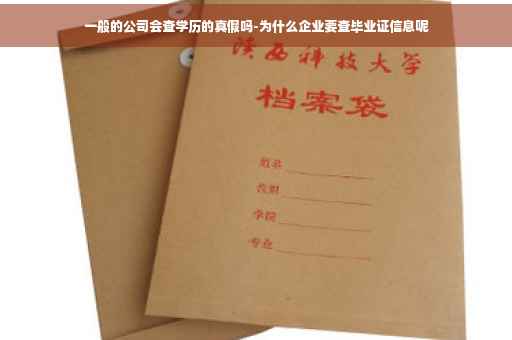 一般的公司会查学历的真假吗-为什么企业要查毕业证信息呢
陕西科技大学
档案袋
姓名
学院
专业